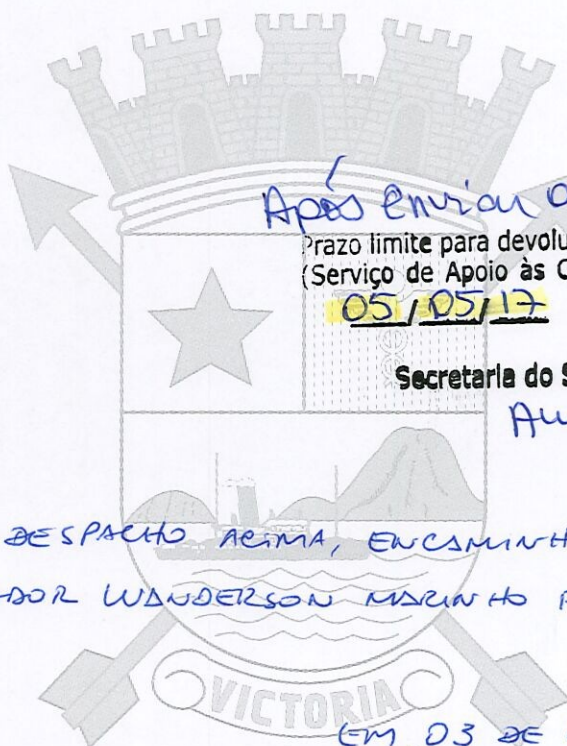 Após enviar o
Prazo limite para devolu
(Serviço de Apoio às C
05/05/17
Secretaria do S
DESPACHO ACIMA, ENCAMINH
DOR WANDERSON MARINHO P
VICTORIA
EM 03 DE